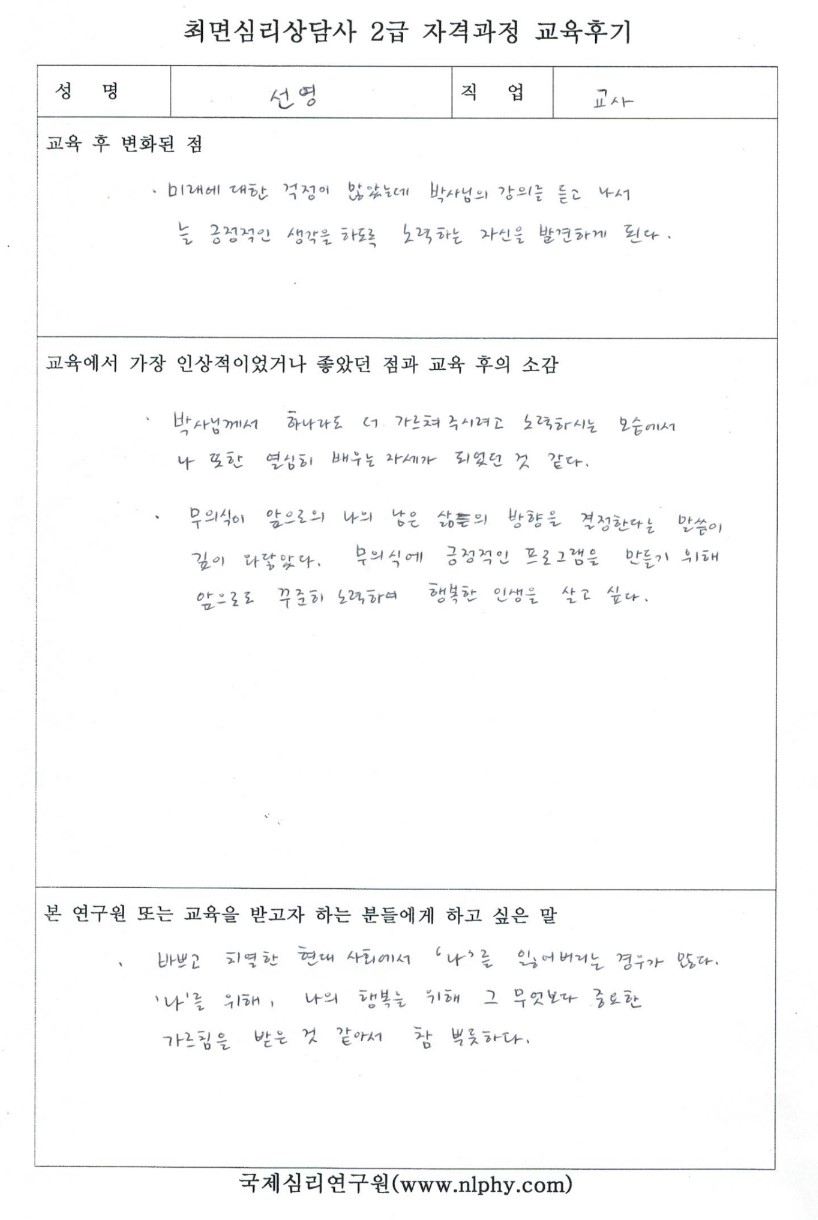 최면심리상담사 2급 자격과정 교육후기
성 명 선영 직 업 교사
교육 후 변화된 점
· 미래에 대한 걱정이 많았는데 박사님의 강의를 듣고 나서
늘 긍정적인 생각을 하도록 노력하는 자신을 발견하게 된다.
교육에서 가장 인상적이었거나 좋았던 점과 교육 후의 소감
· 박사님께서 하나라도 더 가르쳐주시려고 노력하시는 모습에서
나 또한 열심히 배우는 자세가 되었던 것 같다.
· 무의식이 앞으로의 나의 남은 삶의 방향을 결정한다는 말씀이
깊이 와닿았다. 무의식에 긍정적인 프로그램을 만들기 위해
앞으로도 꾸준히 노력하여 행복한 인생을 살고 싶다.
본 연구원 또는 교육을 받고자 하는 분들에게 하고 싶은 말
· 바쁘고 치열한 현대 사회에서 '나'를 잃어버리는 경우가 많다.
'나'를 위해, 나의 행복을 위해 그 무엇보다 중요한
가르침을 받은 것 같아서 참 뿌듯하다.
국제심리연구원(www.nlphy.com)